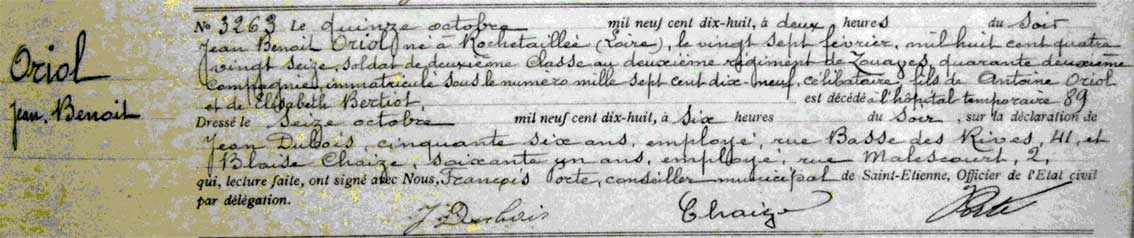 Oriol
Jean, Benoit
No 3263 Le quinze octobre mil neuf cent dix-huit, à deux heures du soir
Jean Benoit Oriol né à Rochetaillée (Loire), le vingt sept février, mil huit cent quatre
vingt seize, soldat de deuxième Classe au deuxième régiment de Zouaves, quarante deuxième
Compagnie, immatriculé sous le numéro mille sept cent dix neuf, célibataire, fils de Antoine Oriol
et de Elisabeth Bertiot, est décédé à l'hôpital temporaire 89
Dressé le seize octobre mil neuf cent dix-huit, à six heures du soir, sur la déclaration de
Jean Dubois, cinquante six ans, employé, rue Basse des Rives, 41, et
Blaise Chaize, soixante un ans, employé, rue Malescourt, 2,
qui, lecture faite, ont signé avec Nous, François Porte, conseiller municipal de Saint-Etienne, Officier de l'Etat civil
par délégation.
J Dubois Chaize Porte